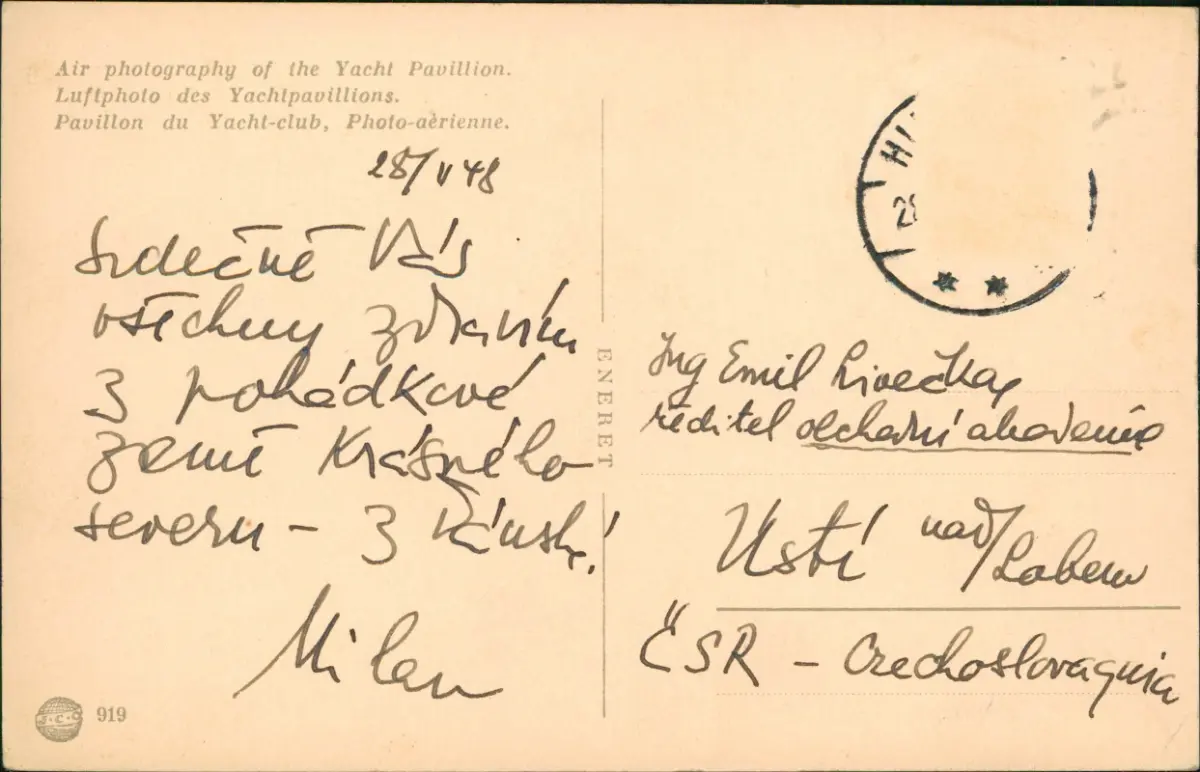 Air photography of the Yacht Pavillion.
Luftphoto des Yachtpavillions.
Pavillon du Yacht-club, Photo-aèrienne.
28/V 48
Srdečně Vás
všechny zdravím
z pohádkové
země krásného
severu - z Dánska!
Milan
ENERET
HI
28
Ing Emil
ředitel obchodní akademie
Ústí nad/
Labem
ČSR - Czechoslovaquia
J·C·O
919